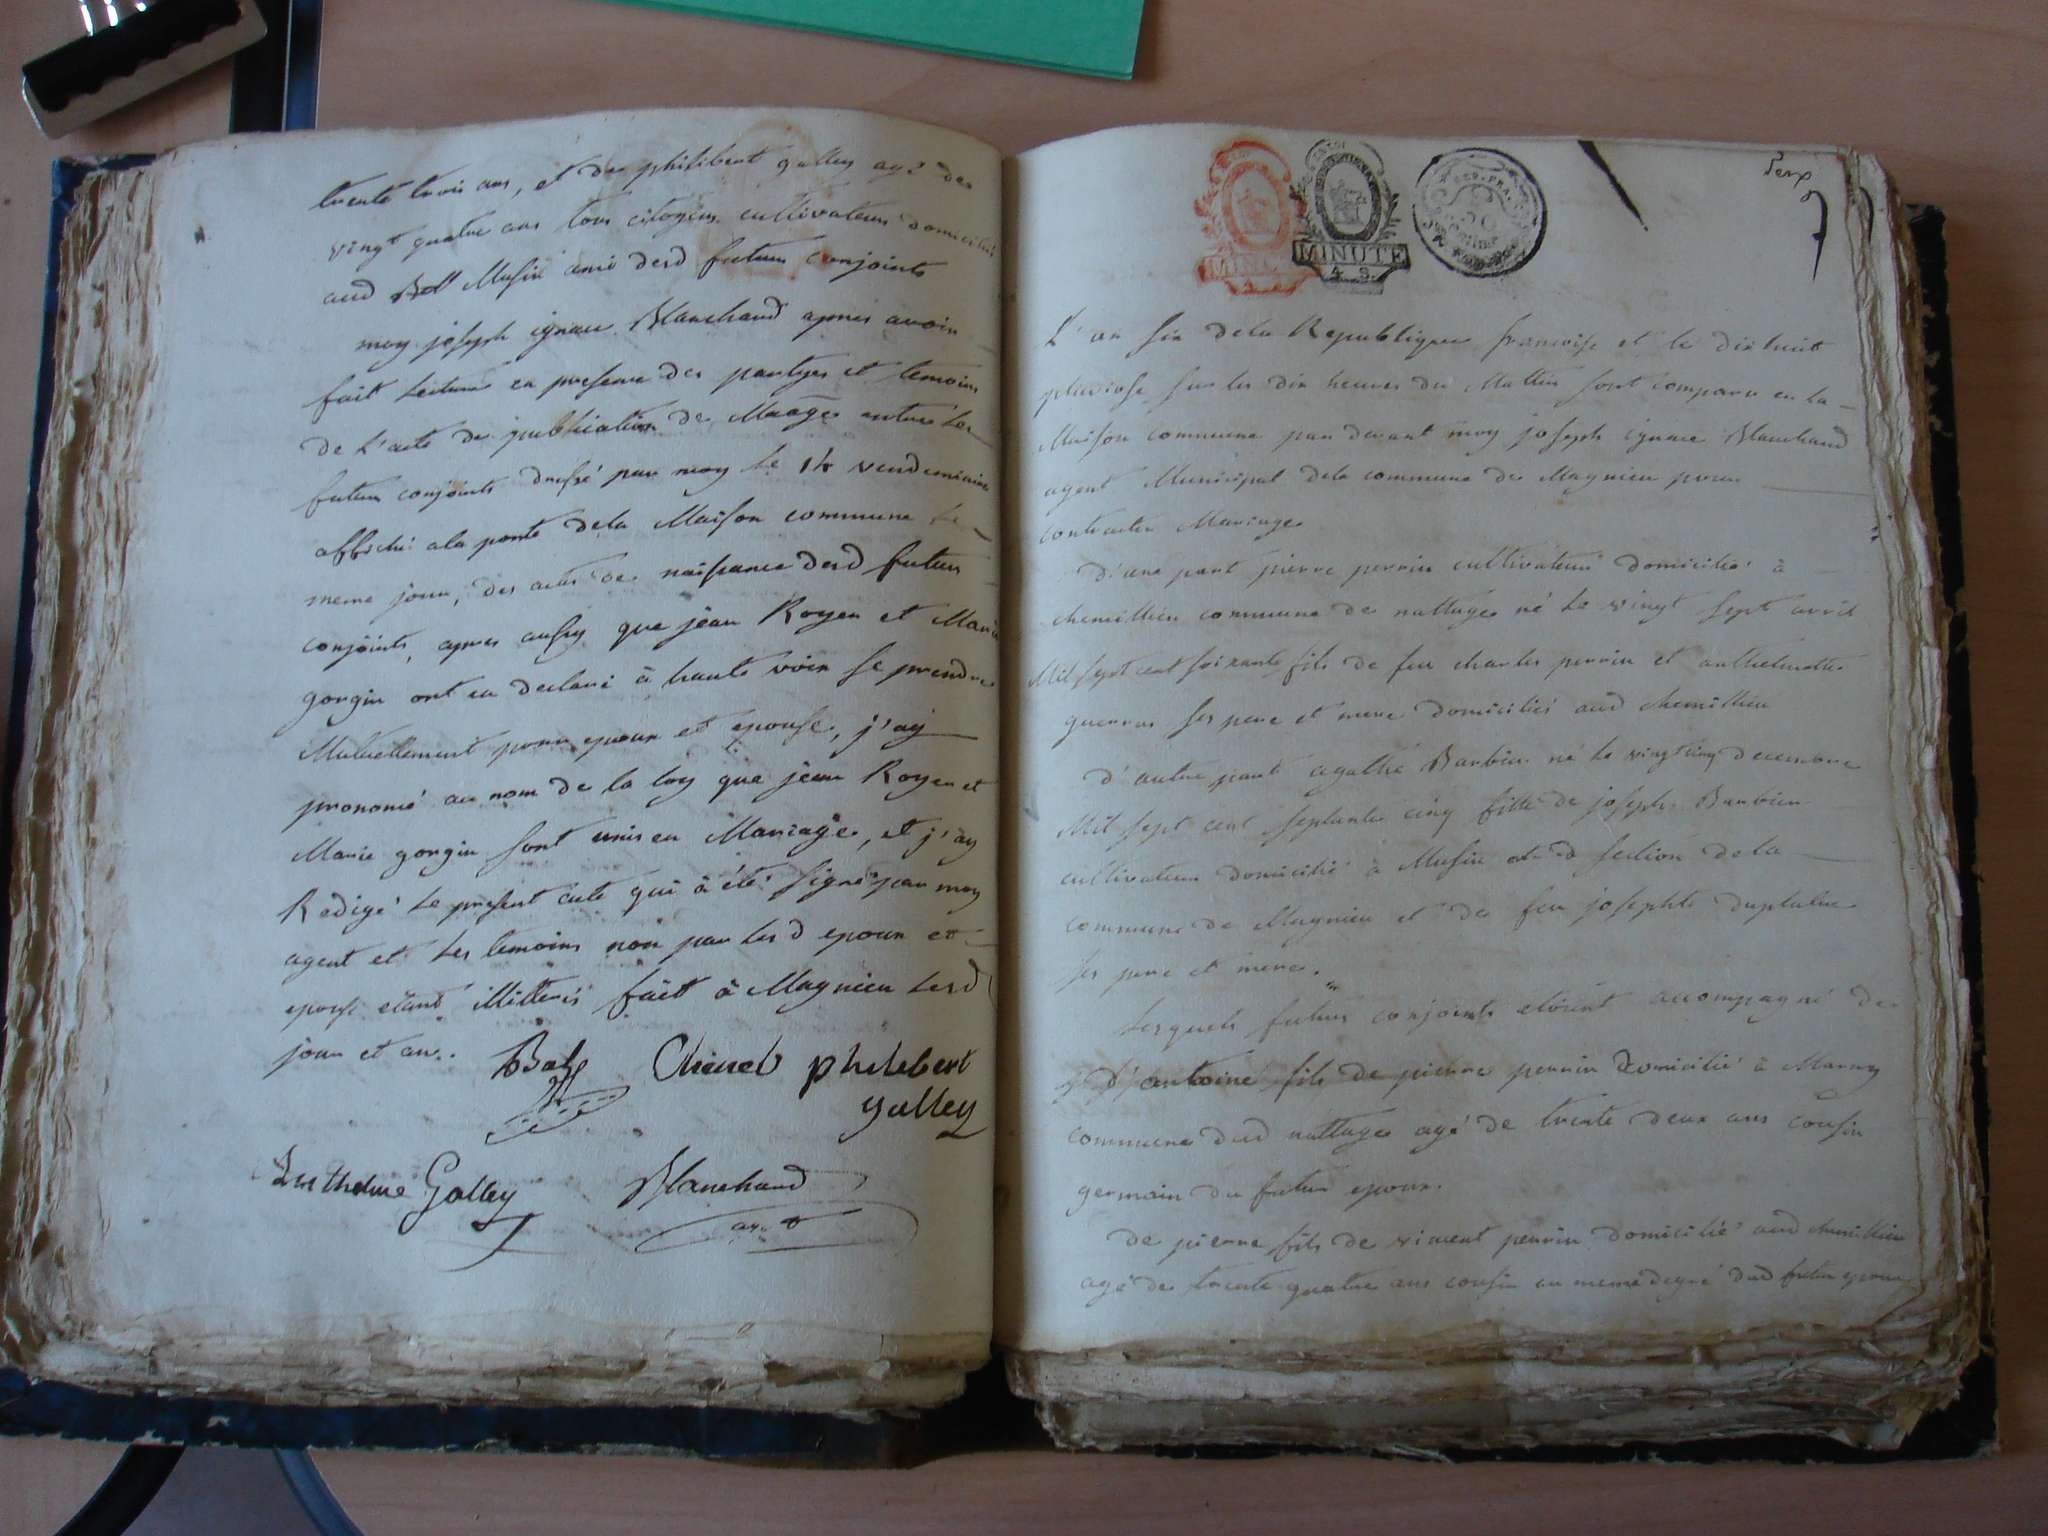 trente trois ans, et de philibert galley agé de
vingt quatre ans tous citoyens cultivateurs domiciliés
aud Musin ami desd futurs conjoints
moy joseph ignace Blanchand apres avoir
fait lecture en presence des partyes et temoins
de l'acte de publication de Mariage entre les
futurs conjoints dressé par moy le 14 vendemiaire
affiché a la porte dela Maison commune le
meme jour, des actes de naissance desd futurs
conjoints, apres aussy que jean Royer et Marie
gorgin ont eu declaré à haute voix se prendre
Mutuellement pour epoux et epouse, j'ay
prononcé au nom de la loy que jean Royer et
Marie gorgin sont unis en Mariage, et j'ay
Redigé le present acte qui à été signé par moy
agent et les temoins non par les d epoux et
epouse etant illitterés fait à Magnieu lesd
jour et an.
Chenel philebert
galley
Anthelme Galley Blanchand
MINUTE
4 S.
REP. FRA.
50
L'an six dela Republique francoise et le dix huit
pluviose sur les dix heures du Mattin sont comparu en la
Maison commune par devant moy joseph ignace Blanchand
agent Municipal dela commune de Magnieu pour
contracter Mariage
d'une part pierre perrin cultivateur domicilié à
chemillieu commune de nattage né le vingt sept avril
Mil sept cent soixante fils de feu charles perrin et anthelmette
guerras ses pere et mere domiciliés aud chemillieu
d'autre part agathe Barbier né le vingt cinq decembre
Mil sept cent septante cinq fille de joseph Barbier
cultivateur domicilié à Musin section dela
commune de Magnieu et de feu josephte duplatre
ses pere et mere.
lesquels futurs conjoints etoint accompagné de
d'antoine fils de pierre perrin domicilié à Marny
commune dud nattage agé de trente deux ans cousin
germain du futur epoux.
de pierre fils de vincent perrin domicilié aud chemillieu
agé de trente quatre ans cousin au meme degré dud futur epoux